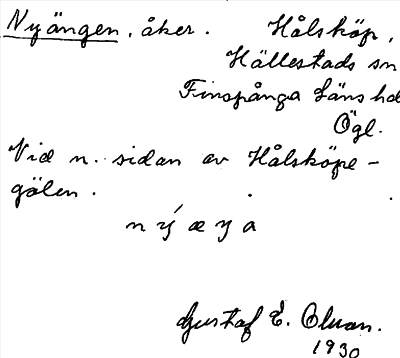 Nyängen, åker. Hålsköp,
Hällestads sn
Finspånga Läns hd
Ögl.
Vid n. sidan av Hålsköpe-
gölen.
Gustaf E. Olson.
1930